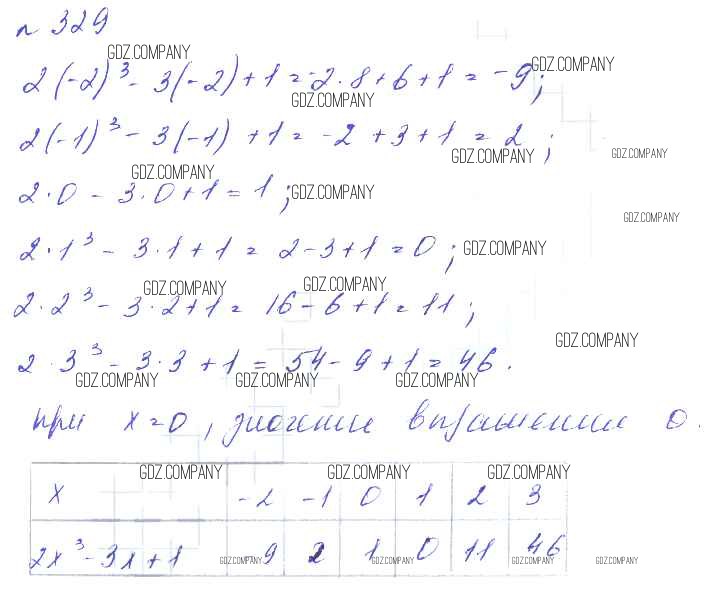 № 329
GDZ.COMPANY
2(-2)³ - 3(-2) + 1 = -2·8 + 6 + 1 = -9;
GDZ.COMPANY
GDZ.COMPANY
2(-1)³ - 3(-1) + 1 = -2 + 3 + 1 = 2;
GDZ.COMPANY GDZ.COMPANY
GDZ.COMPANY
2·0 - 3·0 + 1 = 1; GDZ.COMPANY
GDZ.COMPANY
2·1³ - 3·1 + 1 = 2 - 3 + 1 = 0; GDZ.COMPANY
GDZ.COMPANY GDZ.COMPANY
2·2³ - 3·2 + 1 = 16 - 6 + 1 = 11;
GDZ.COMPANY
2·3³ - 3·3 + 1 = 54 - 9 + 1 = 46.
GDZ.COMPANY GDZ.COMPANY GDZ.COMPANY
при x = 0, значение выражения 0.
GDZ.COMPANY GDZ.COMPANY GDZ.COMPANY
x -2 -1 0 1 2 3
2x³ - 3x + 1 -9 2 1 0 11 46
GDZ.COMPANY GDZ.COMPANY GDZ.COMPANY GDZ.COMPANY